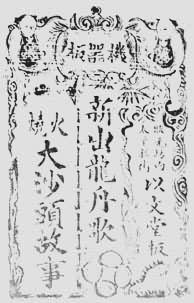 機器板
以文堂板
新出龍舟歌
火燒
大沙頭故事